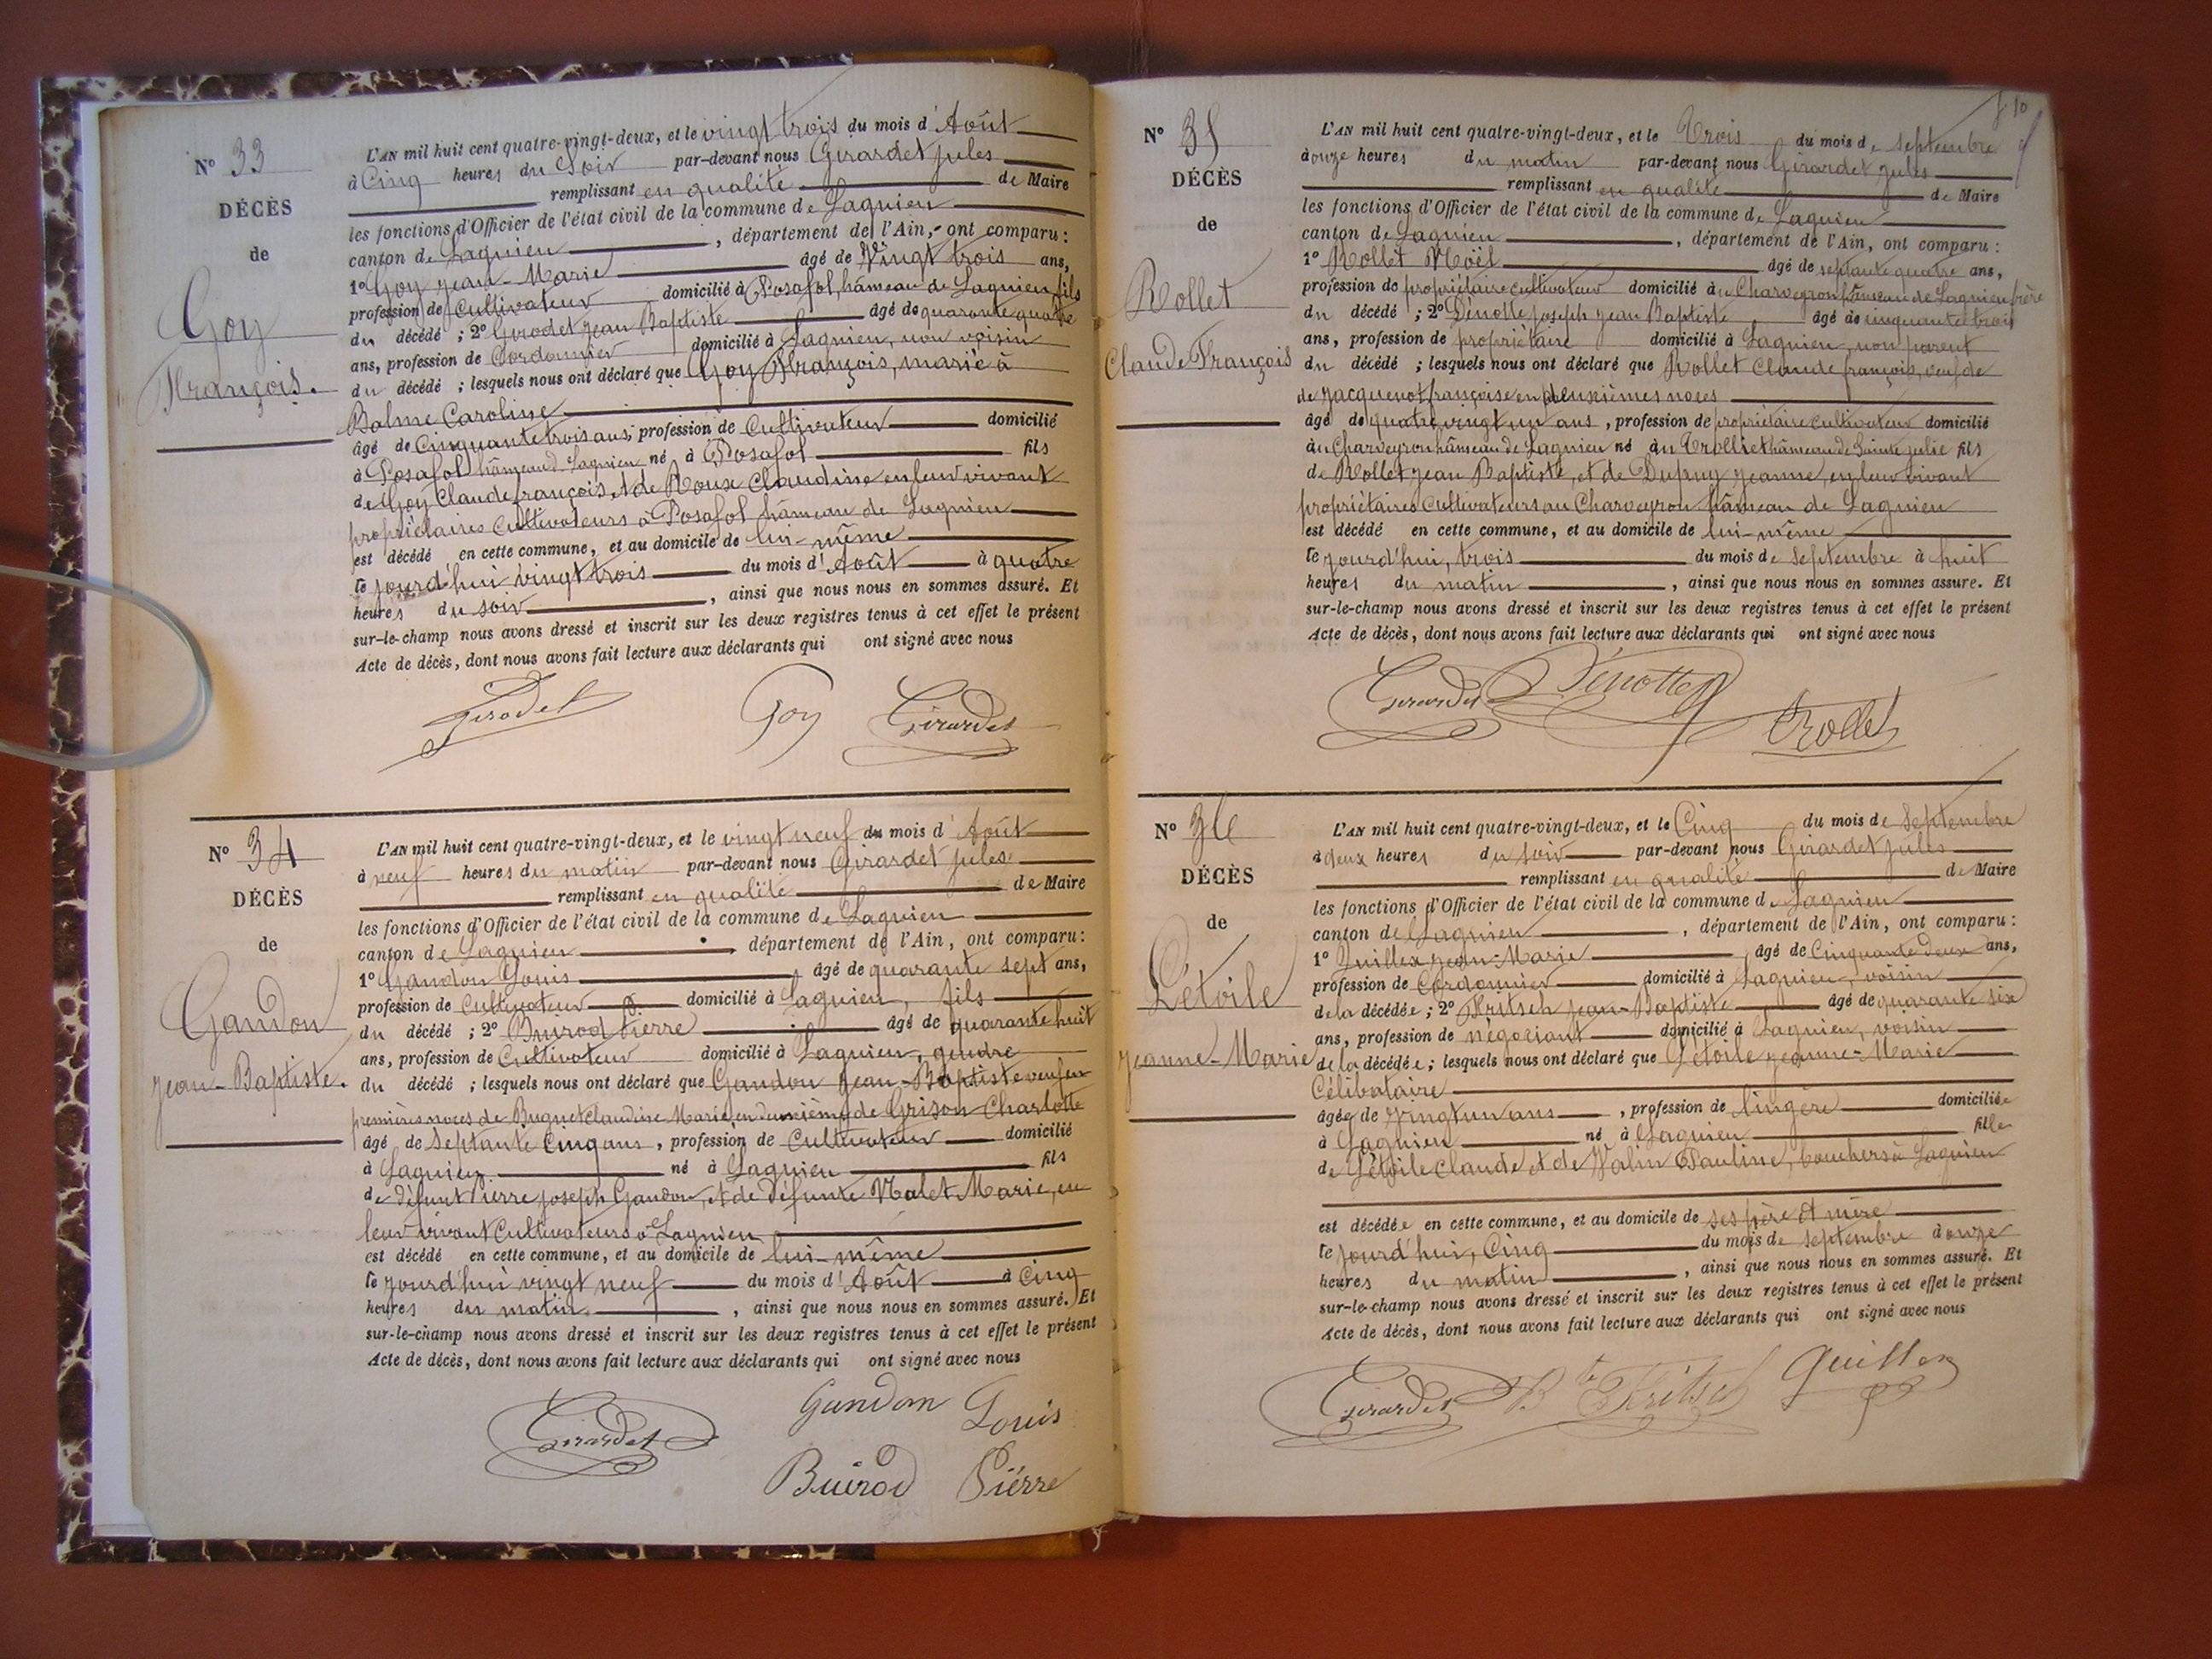 N° 33
DÉCÈS
de
Goy
François.
L'AN mil huit cent quatre-vingt-deux, et le vingt trois du mois d'Août
à Cinq heures du Soir par-devant nous Girardet jules
remplissant en qualité de Maire
les fonctions d'Officier de l'état civil de la commune de Lagnieu
canton de Lagnieu, département de l'Ain, ont comparu :
1° Goy jean-Marie âgé de Vingt trois ans,
profession de Cultivateur domicilié à Posafol, hâmeau de Lagnieu fils
du décédé ; 2° Girodet jean Baptiste âgé de quarante quatre
ans, profession de Cordonnier domicilié à Lagnieu, non voisin
du décédé ; lesquels nous ont déclaré que Goy François, marié à
Balme Caroline
âgé de Cinquante trois ans, profession de Cultivateur domicilié
à Posafol hâmeau d. Lagnieu né à Posafol fils
de Goy Claude françois et de Roux Claudine en leur vivant
propriétaires Cultivateurs à Posafol hâmeau de Lagnieu
est décédé en cette commune, et au domicile de lui-même
le jourd'hui vingt trois du mois d'Août à quatre
heures du soir, ainsi que nous nous en sommes assuré. Et
sur-le-champ nous avons dressé et inscrit sur les deux registres tenus à cet effet le présent
Acte de décès, dont nous avons fait lecture aux déclarants qui ont signé avec nous
Girodet Goy Girardet
N° 34
DÉCÈS
de
Gandon
jean-Baptiste.
L'AN mil huit cent quatre-vingt-deux, et le vingt neuf du mois d'Août
à neuf heures du matin par-devant nous Girardet jules
remplissant en qualité de Maire
les fonctions d'Officier de l'état civil de la commune de Lagnieu
canton de Lagnieu, département de l'Ain, ont comparu :
1° Gandon Louis âgé de quarante sept ans,
profession de Cultivateur domicilié à Lagnieu, fils
du décédé ; 2° Buirod Pierre âgé de quarante huit
ans, profession de Cultivateur domicilié à Lagnieu, gendre
du décédé ; lesquels nous ont déclaré que Gandon Jean-Baptiste veuf en
premières noces de Buguet Claudine Marie en deuxième de Grison Charlotte
âgé de Septante Cinq ans, profession de Cultivateur domicilié
à Lagnieu né à Lagnieu fils
de défunt Pierre joseph Gandon, et de défunte Malet Marie, en
leur vivant Cultivateurs à Lagnieu
est décédé en cette commune, et au domicile de lui-même
le jourd'hui vingt neuf du mois d'Août à Cinq
heures du matin, ainsi que nous nous en sommes assuré. Et
sur-le-champ nous avons dressé et inscrit sur les deux registres tenus à cet effet le présent
Acte de décès, dont nous avons fait lecture aux déclarants qui ont signé avec nous
Girardet Gandon Louis
Buirod Piérre
10
N° 35
DÉCÈS
de
Rollet
Claude François
L'AN mil huit cent quatre-vingt-deux, et le Trois du mois de septembre
à onze heures du matin par-devant nous Girardet jules
remplissant en qualité de Maire
les fonctions d'Officier de l'état civil de la commune de Lagnieu
canton de Lagnieu, département de l'Ain, ont comparu :
1° Rollet Noël âgé de septante quatre ans,
profession de propriétaire cultivateur domicilié à u Charveyron hâmeau de Lagnieu frère
du décédé ; 2° Dénolle joseph jean Baptiste âgé de cinquante trois
ans, profession de propriétaire domicilié à Lagnieu, non parent
du décédé ; lesquels nous ont déclaré que Rollet Claude françois, veuf de
de jacquenot françoise en deuxièmes noces
âgé de quatre vingt un ans, profession de propriétaire cultivateur domicilié
àu Charveyron hâmeau de Lagnieu né àu Trolliet hâmeau de Sainte julie fils
de Rollet jean Baptiste, et de Dupuy jeanne, en leur vivant
propriétaires Cultivateurs au Charveyron hâmeau de Lagnieu
est décédé en cette commune, et au domicile de lui-même
le jourd'hui, trois du mois de septembre à huit
heures du matin, ainsi que nous nous en sommes assuré. Et
sur-le-champ nous avons dressé et inscrit sur les deux registres tenus à cet effet le présent
Acte de décès, dont nous avons fait lecture aux déclarants qui ont signé avec nous
Girardet Rollet
N° 36
DÉCÈS
de
Létoile
jeanne-Marie
L'AN mil huit cent quatre-vingt-deux, et le Cinq du mois de Septembre
à deux heures du soir par-devant nous Girardet jules
remplissant en qualité de Maire
les fonctions d'Officier de l'état civil de la commune de Lagnieu
canton de Lagnieu, département de l'Ain, ont comparu :
1° Quillex jean-Marie âgé de Cinquante deux ans,
profession de Cordonnier domicilié à Lagnieu, voisin
de la décédée ; 2° Fritsch jean-Baptiste âgé de quarante six
ans, profession de négociant domicilié à Lagnieu, voisin
de la décédée ; lesquels nous ont déclaré que Létoile jeanne-Marie
Célibataire
âgée de vingt un ans, profession de lingère domiciliée
à Lagnieu né à Lagnieu fille
de Létoile Claude et de Valin Pauline, bouchers à Lagnieu
est décédée en cette commune, et au domicile de ses père et mère
le jourd'hui, Cinq du mois de septembre à onze
heures du matin, ainsi que nous nous en sommes assuré. Et
sur-le-champ nous avons dressé et inscrit sur les deux registres tenus à cet effet le présent
Acte de décès, dont nous avons fait lecture aux déclarants qui ont signé avec nous
Girardet Bte Fritsch Quillex